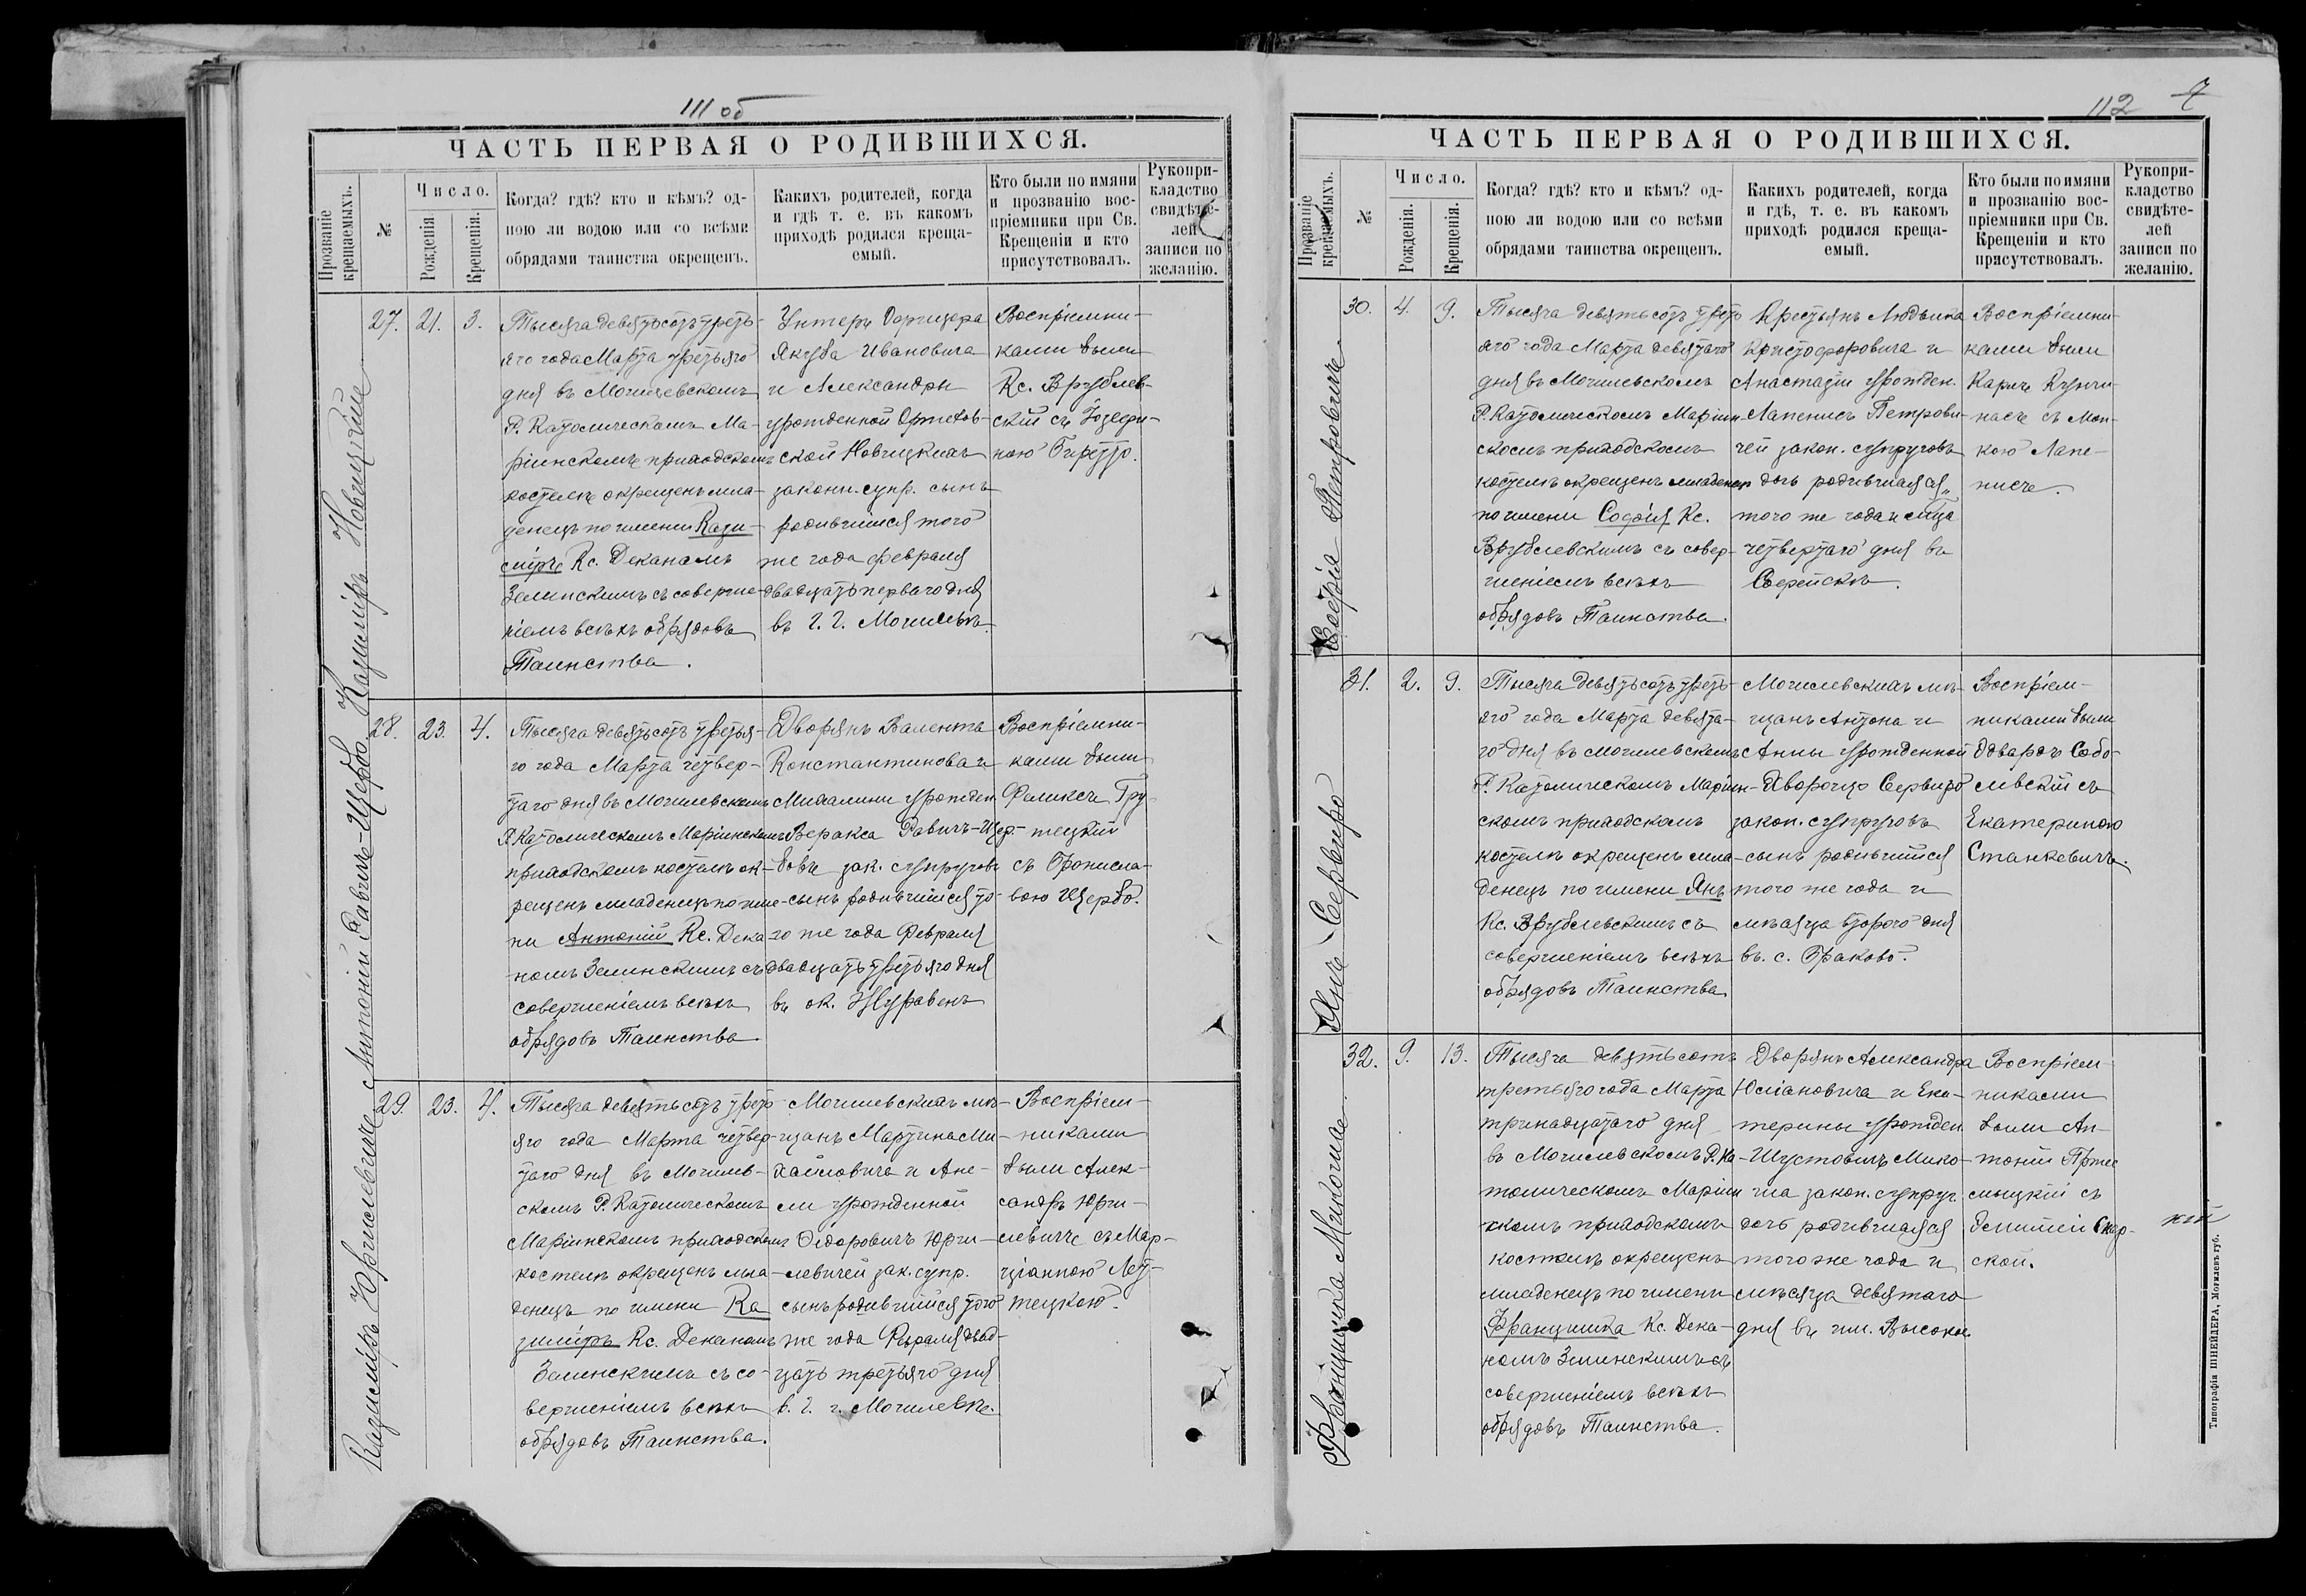 111 об
ЧАСТЬ ПЕРВАЯ О РОДИВШИХСЯ.
Прозваніе крещаемыхъ.
№
Число.
Рожденія.
Крещенія.
Когда? гдѣ? кто и кѣмъ? од-
ною ли водою или со всѣми
обрядами таинства окрещенъ.
Какихъ родителей, когда
и гдѣ т. е. въ какомъ
приходѣ родился креща-
емый.
Кто были по имяни
и прозванію вос-
пріемники при Св.
Крещеніи и кто
присутствовалъ.
Рукопри-
кладство
свидѣте-
лей
записи по
желанію.
Казиміръ Новицкій
27. 21. 3.
Тысяча девятьсотъ треть-
яго года Марта третьяго
дня въ Могилевскомъ
Р. Католическомъ Ма-
ріинскомъ приходскомъ
костелѣ окрещенъ мла-
денецъ по имени Кази-
міръ Кс. Деканомъ
Зелинскимъ съ соверше-
ніемъ всѣхъ обрядовъ
Таинства.
Унтеръ Офицера
Якуба Ивановича
и Александры
урожденной
ской Новицкихъ
законн. супр. сынъ
родившійся того
же года февраля
двадцать перваго дня
въ г. г. Могилевѣ.
Воспріемни-
ками были
Кс. Врублев-
скій съ Іозефи-
ною
Антоній Равичъ-Щербо
28. 23. 4.
Тысяча девятьсотъ третья-
го года Марта четвер-
таго дня въ Могилевскомъ
Р. Католическомъ Маріинскомъ
приходскомъ костелѣ ок-
рещенъ младенецъ по име-
ни Антоній Кс. Дека
номъ Зелинскимъ съ
совершеніемъ всѣхъ
обрядовъ Таинства.
Дворянъ Валента
Константинова и
Михалины урожден.
Веракса Равичъ-Щер-
бовъ зак. супруговъ
сынъ родившійся то-
го же года Февраля
двадцать третьяго дня
въ ок. Журавенъ
Воспріемни-
ками были
Феликсъ Гру-
тецкій
съ Брониcла-
вою Щербо.
Казиміръ Юргилевичъ
29. 23. 4.
Тысяча девятьсотъ треть
яго года Марта четвер-
таго дня въ Могилев-
скомъ Р. Католическомъ
Маріинскомъ приходскомъ
костелѣ окрещенъ мла-
денецъ по имени Ка
зиміръ Кс. Деканомъ
Зелинскимъ съ со-
вершеніемъ всѣхъ
обрядовъ Таинства.
Могилевскихъ мѣ-
щанъ Мартина Ми-
хайловича и Ане-
ли урожденной
Ѳедоровичъ Юрги-
левичей зак. супр.
сынъ родившійся того
же года Февраля двад-
цать третьяго дня
в. г. г. Могилевѣ.
Воспріем-
никами
были Алек-
сандръ Юрги-
левичъ съ Мар-
ціанною
тецкою.
112 7
ЧАСТЬ ПЕРВАЯ О РОДИВШИХСЯ.
Прозваніе крещаемыхъ.
№
Число.
Рожденія.
Крещенія.
Когда? гдѣ? кто и кѣмъ? од-
ною ли водою или со всѣми
обрядами таинства окрещенъ.
Какихъ родителей, когда
и гдѣ, т. е. въ какомъ
приходѣ родился креща-
емый.
Кто были по имяни
и прозванію вос-
пріемники при Св.
Крещеніи и кто
присутствовалъ.
Рукопри-
кладство
свидѣте-
лей
записи по
желанію.
Софія Петровичъ.
30. 4. 9.
Тысяча девятьсотъ треть
яго года Марта девятаго
дня въ Могилевскомъ
Р. Католическомъ Маріин-
скомъ приходскомъ
костелѣ окрещенъ младенецъ
по имени Софія Кс.
Врублевскимъ съ совер-
шеніемъ всѣхъ
обрядовъ Таинства.
Крестьянъ Людвика
Кристофоровича и
Анастазіи урожден.
Лапенисъ Петрови-
чей закон. супруговъ
дочь родившаяся
того же года и мѣсца
четвертаго дня въ
Воспріемни-
ками были
Карлъ
съ Мон-
кою Лапе-
нисъ.
Янъ Сервиро
31. 2. 9.
Тысяча девятьсотъ треть-
яго года Марта девята-
го дня въ Могилевскомъ
Р. Католическомъ Маріин-
скомъ приходскомъ
костелѣ окрещенъ мла-
денецъ по имени Янъ
Кс. Врублевскимъ съ
совершеніемъ всѣхъ
обрядовъ Таинства
Могилевскихъ мѣ-
щанъ Антона и
Анны урожденной
Дворочцо Сервиро
закон. супруговъ
сынъ родившійся
того же года и
мѣсяца второго дня
въ. с. Браково.
Воспріем-
никами были
Эдвардъ Собо-
левскій съ
Екатериною
Станкевичъ.
Францишка Микоша.
32. 9. 13.
Тысяча девятьсотъ
третьяго года Марта
тринадцатаго дня
въ Могилевскомъ Р. Ка-
толическомъ Маріин
скомъ приходскомъ
костелѣ окрещенъ
младенецъ по имени
Францишка Кс. Дека-
номъ Зелинскимъ съ
совершеніемъ всѣхъ
обрядовъ Таинства.
Дворянъ Александра
Юліановича и Ека-
терины урожден
Шустовичъ Мико-
ша закон. супруг.
дочь родившаяся
того же года и
мѣсяца девятаго
дня въ им. Высокое
Воспріем-
никами
были Ан-
тоній
съ
Эмиліей
ской.
Типографія ШНЕЙДЕРА, Могилевъ губ.